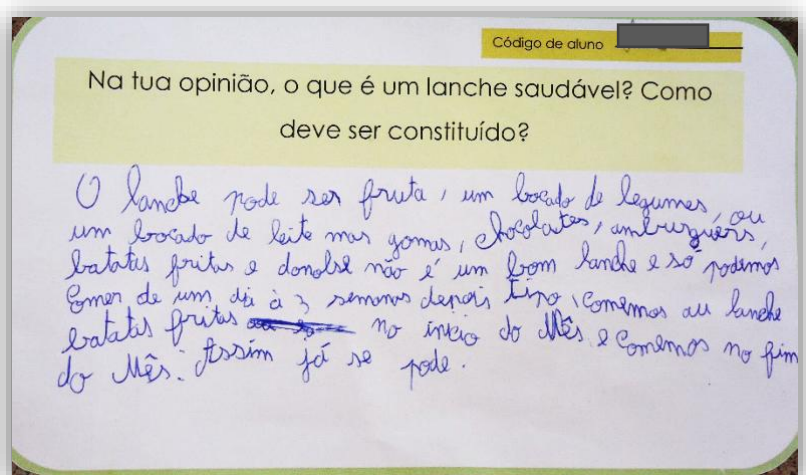 Código de aluno
Na tua opinião, o que é um lanche saudável? Como
deve ser constituído?
O lanche pode ser fruta, um bocado de legumes, ou
um bocado de leite mas gomas, chocolates, amburguérs,
batatas fritas e donolse não é um bom lanche e só podemos
comer de um dia à 3 semanas depois tipo, comemos au lanche
batatas fritas no inicio do Mês e comemos no fim
do Mês. Assim já se pode.